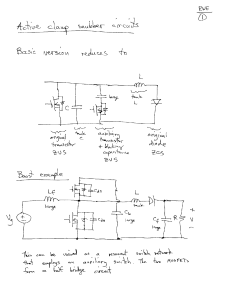 RWE
1
Active clamp snubber circuits
Basic version reduces to
L
C
large
tank L
original transistor ZVS
tank C
auxiliary transistor + blocking capacitance ZVS
original diode ZCS
Boost example
Lf
large
Cds
L
tank L
Vg
Cds
Cb
large
Cf
large
R
+
V
-
This can be viewed as a resonant switch network
that employs an auxiliary switch. The two MOSFETs
form a half bridge circuit.